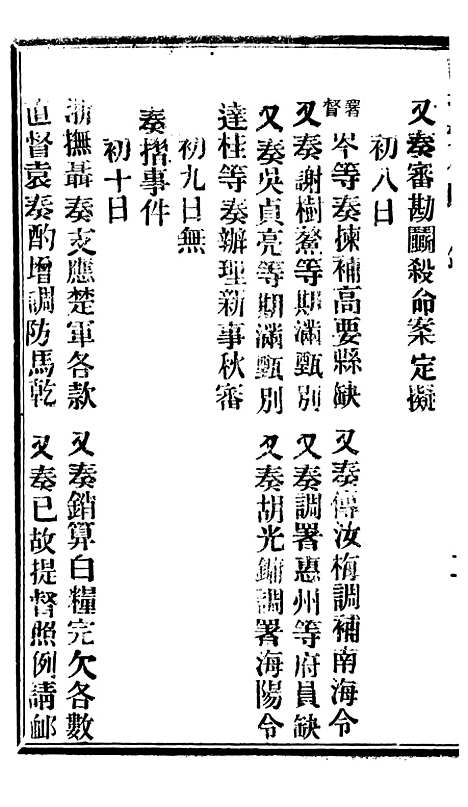 又奏審勘鬭殺命案定擬
初八日
署督岑等奏揀補高要縣缺 又奏傅汝梅調補南海令
又奏謝樹鰲等期滿甄別 又奏調署惠州等府員缺
又奏吳貞亮等期滿甄別 又奏胡光鏞調署海陽令
達桂等奏辦理新事秋審
初九日無
奏摺事件
初十日
浙撫聶奏支應楚軍各款 又奏銷算白糧完欠各數
直督袁奏酌增調防馬乾 又奏已故提督照例請卹